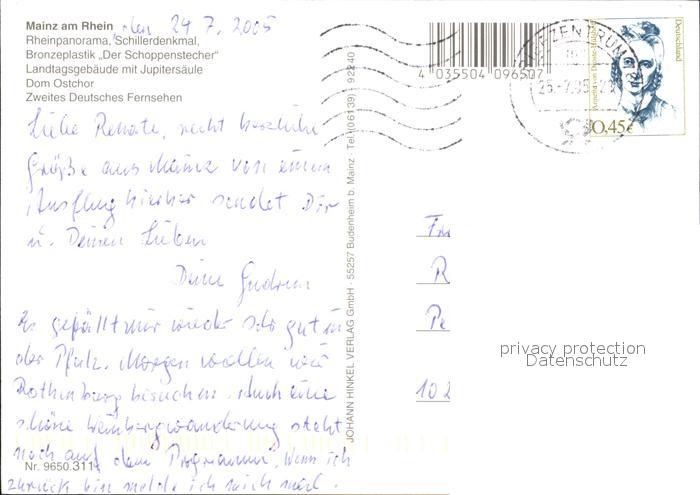 Mainz am Rhein, den 24 7. 2005
Rheinpanorama, Schillerdenkmal,
Bronzeplastik „Der Schoppenstecher“
Landtagsgebäude mit Jupitersäule
Dom Ostchor
Zweites Deutsches Fernsehen
Liebe Renate, recht herzliche
Grüße aus Mainz von einem
Ausflug hierher sendet Dir
u. Deinen Lieben
Deine Gudrun
Es gefällt mir wieder sehr gut in
der Pfalz. Morgen wollen wir
Rothenburg besuchen. Auch eine
schöne Weinbergwanderung steht
noch auf dem Programm. Wenn ich
zurück bin melde ich mich mal.
Nr. 9650.311
JOHANN HINKEL VERLAG GmbH · 55257 Budenheim b. Mainz · Tel. (06139) 92240
4 035504 096507
BRIEFZENTRUM
25.-7.05
Deutschland
0,45€
Fr
R
Pe
102
privacy protection
Datenschutz